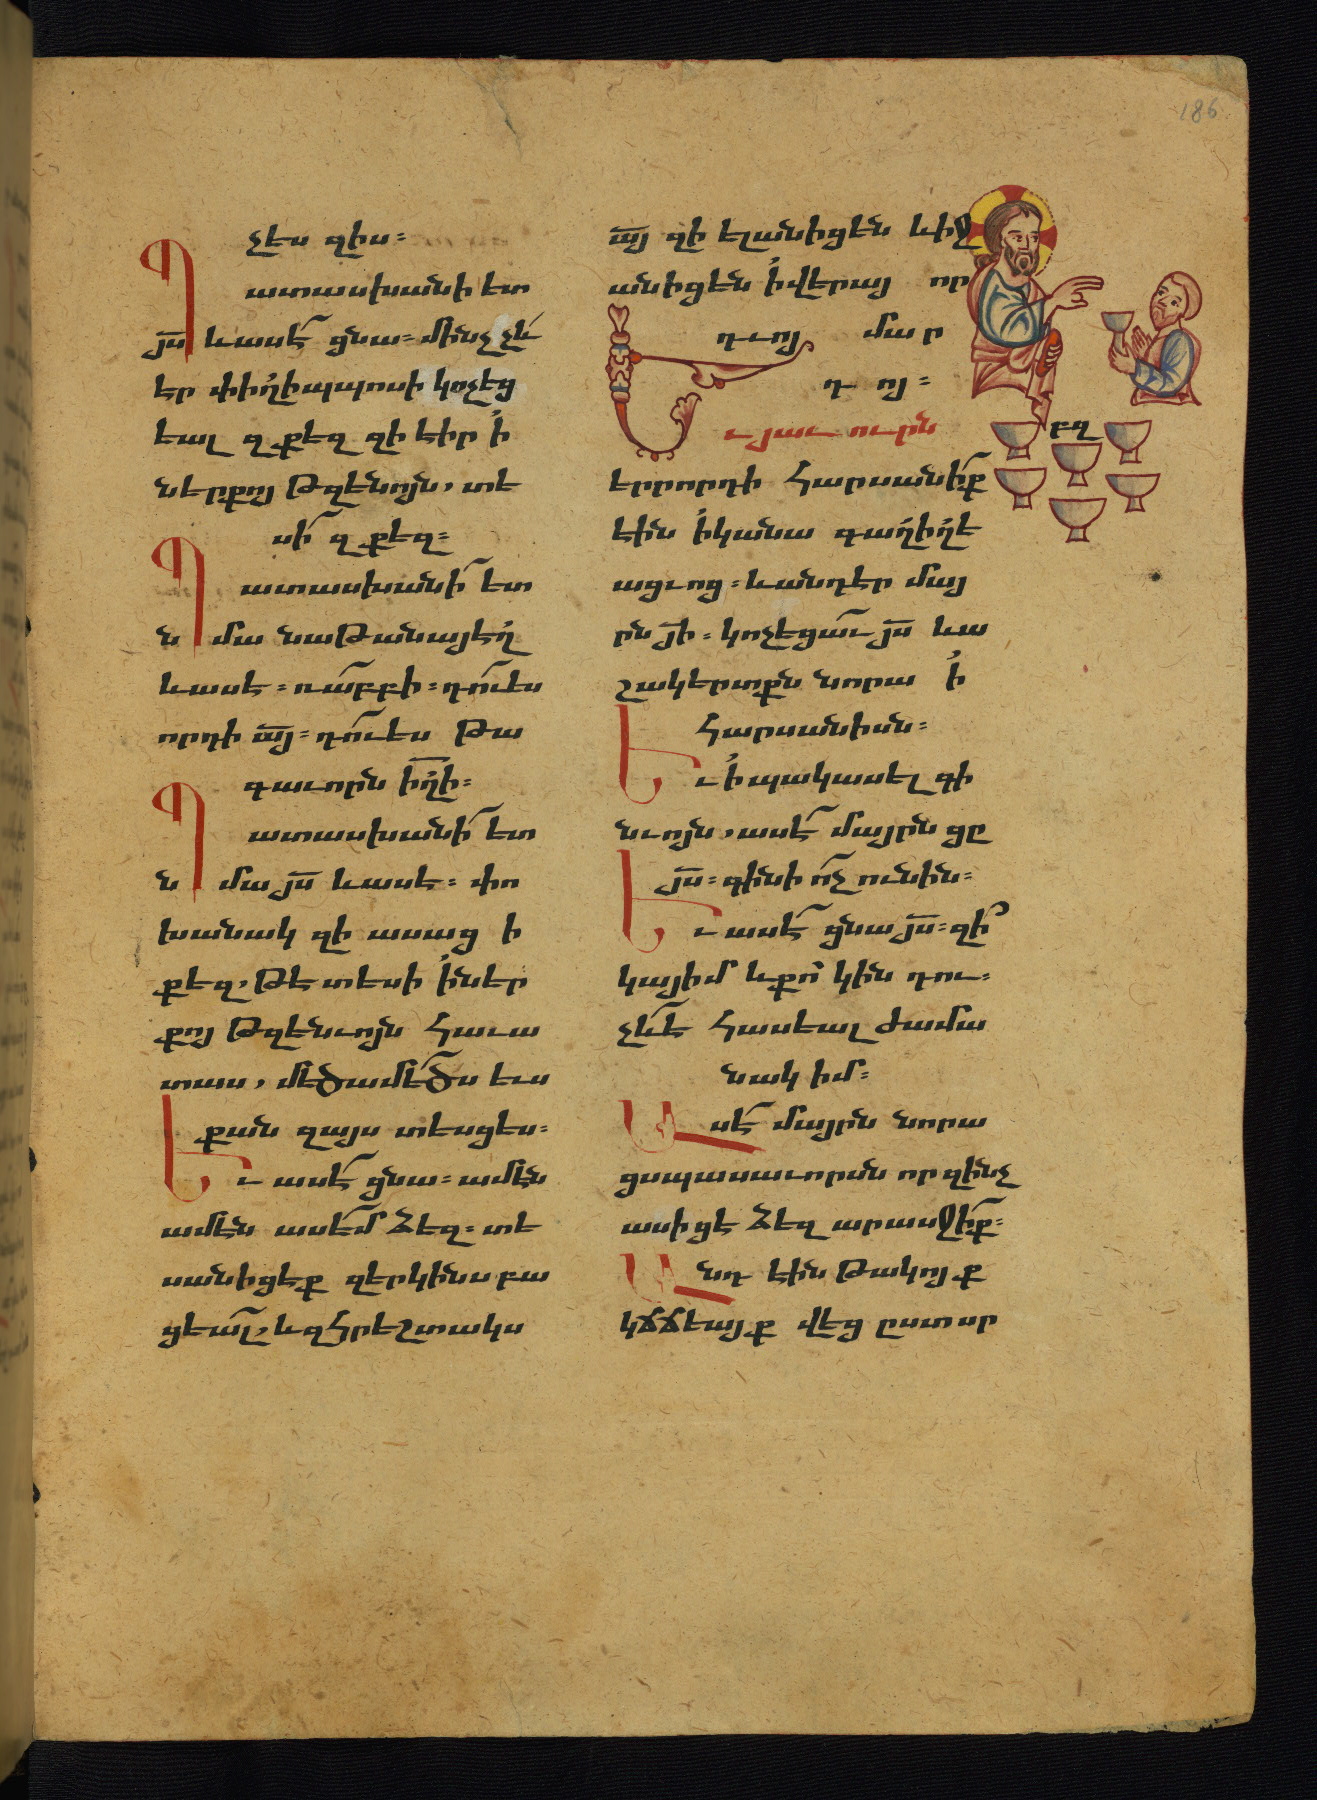 186
չես զիս։
Պատասխանի ետ
յս և ասէ ցնա։ մինչ չև
էր փիղիպպոսի կոչեց
եալ զքեզ զի էիր ի
ներքոյ թզենոյն, տե
սի զքեզ։
Պատասխանի ետ
նմա նաթանայէղ
և ասէ։ ռաբբի։ դու ես
որդի այ։ դու ես թա
գաւորն իղի։
Պատասխանի ետ
նմա յս և ասէ։ փո
խանակ զի ասացի
քեզ, թե տեսի ի ներ
քոյ թզենւոյն հաւա
տաս, մեծամեծս ևս
քան զայս տեսցես։
Եւ ասէ ցնա։ ամէն
ամէն ասեմ ձեզ։ տե
սանիցէք զերկինս բա
ցեալ, և զհրեշտակս
այ զի ելանիցեն և իջ
անիցեն ի վերայ որ
դւոյ մար
դոյ։
Եւ յաւուրն
բզ
երրորդի հարսանիք
էին ի կանա գաղիղե
ացւոց։ և անդ էր մայ
րն յի։ կոչեցաւ յս և ա
շակերտքն նորա ի
հարսանիսն։
Եւ ի պակասել գի
նւոյն, ասէ մայրն ցը
յս։ գինի ոչ ունին։
Եւ ասէ ցնա յս։ զի
կայ իմ և քո կին դու։
չև է հասեալ ժամա
նակ իմ։
Ասէ մայրն նորա
ցսպասաւորսն որ զինչ
ասիցէ ձեզ արասջիք։
Անդ էին թակոյք
կճճեայք վեց ըստ սր